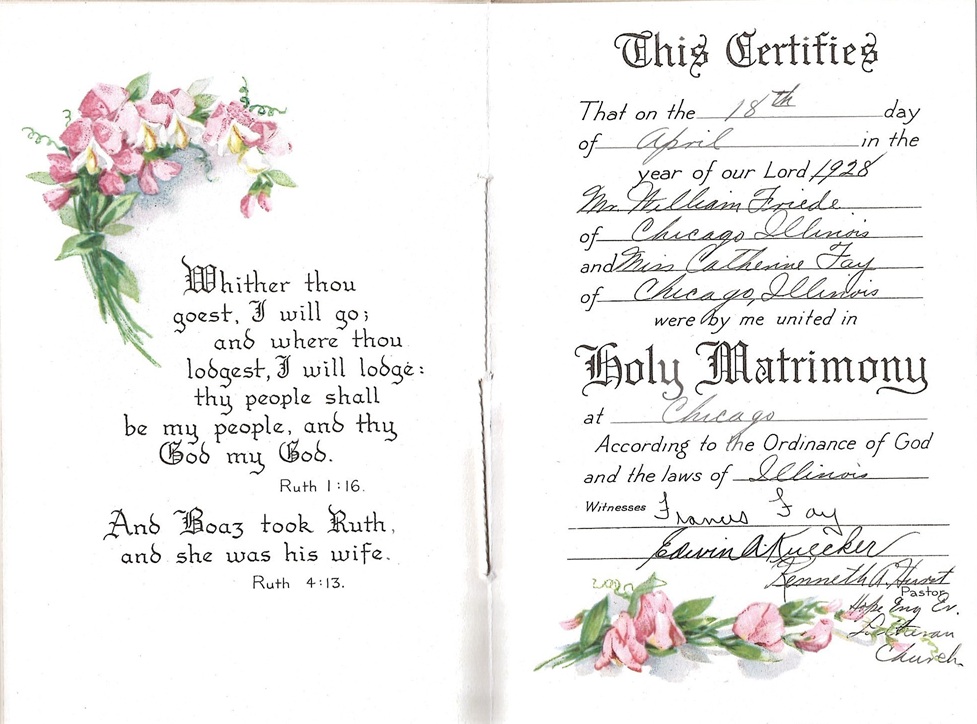 Whither thou
goest, I will go;
and where thou
lodgest, I will lodge:
thy people shall
be my people, and thy
God my God.
Ruth 1:16.
And Boaz took Ruth,
and she was his wife.
Ruth 4:13.
This Certifies
That on the 18th day
of April in the
year of our Lord 1928
Mr. William Friede
of Chicago Illinois
and Miss Catherine Fay
of Chicago, Illinois
were by me united in
Holy Matrimony
at Chicago
According to the Ordinance of God
and the laws of Illinois
Witnesses Frances Fay
Edwin A. Kuecker
Kenneth A. Hurst
Pastor
Hope Eng Ev.
Lutheran
Church